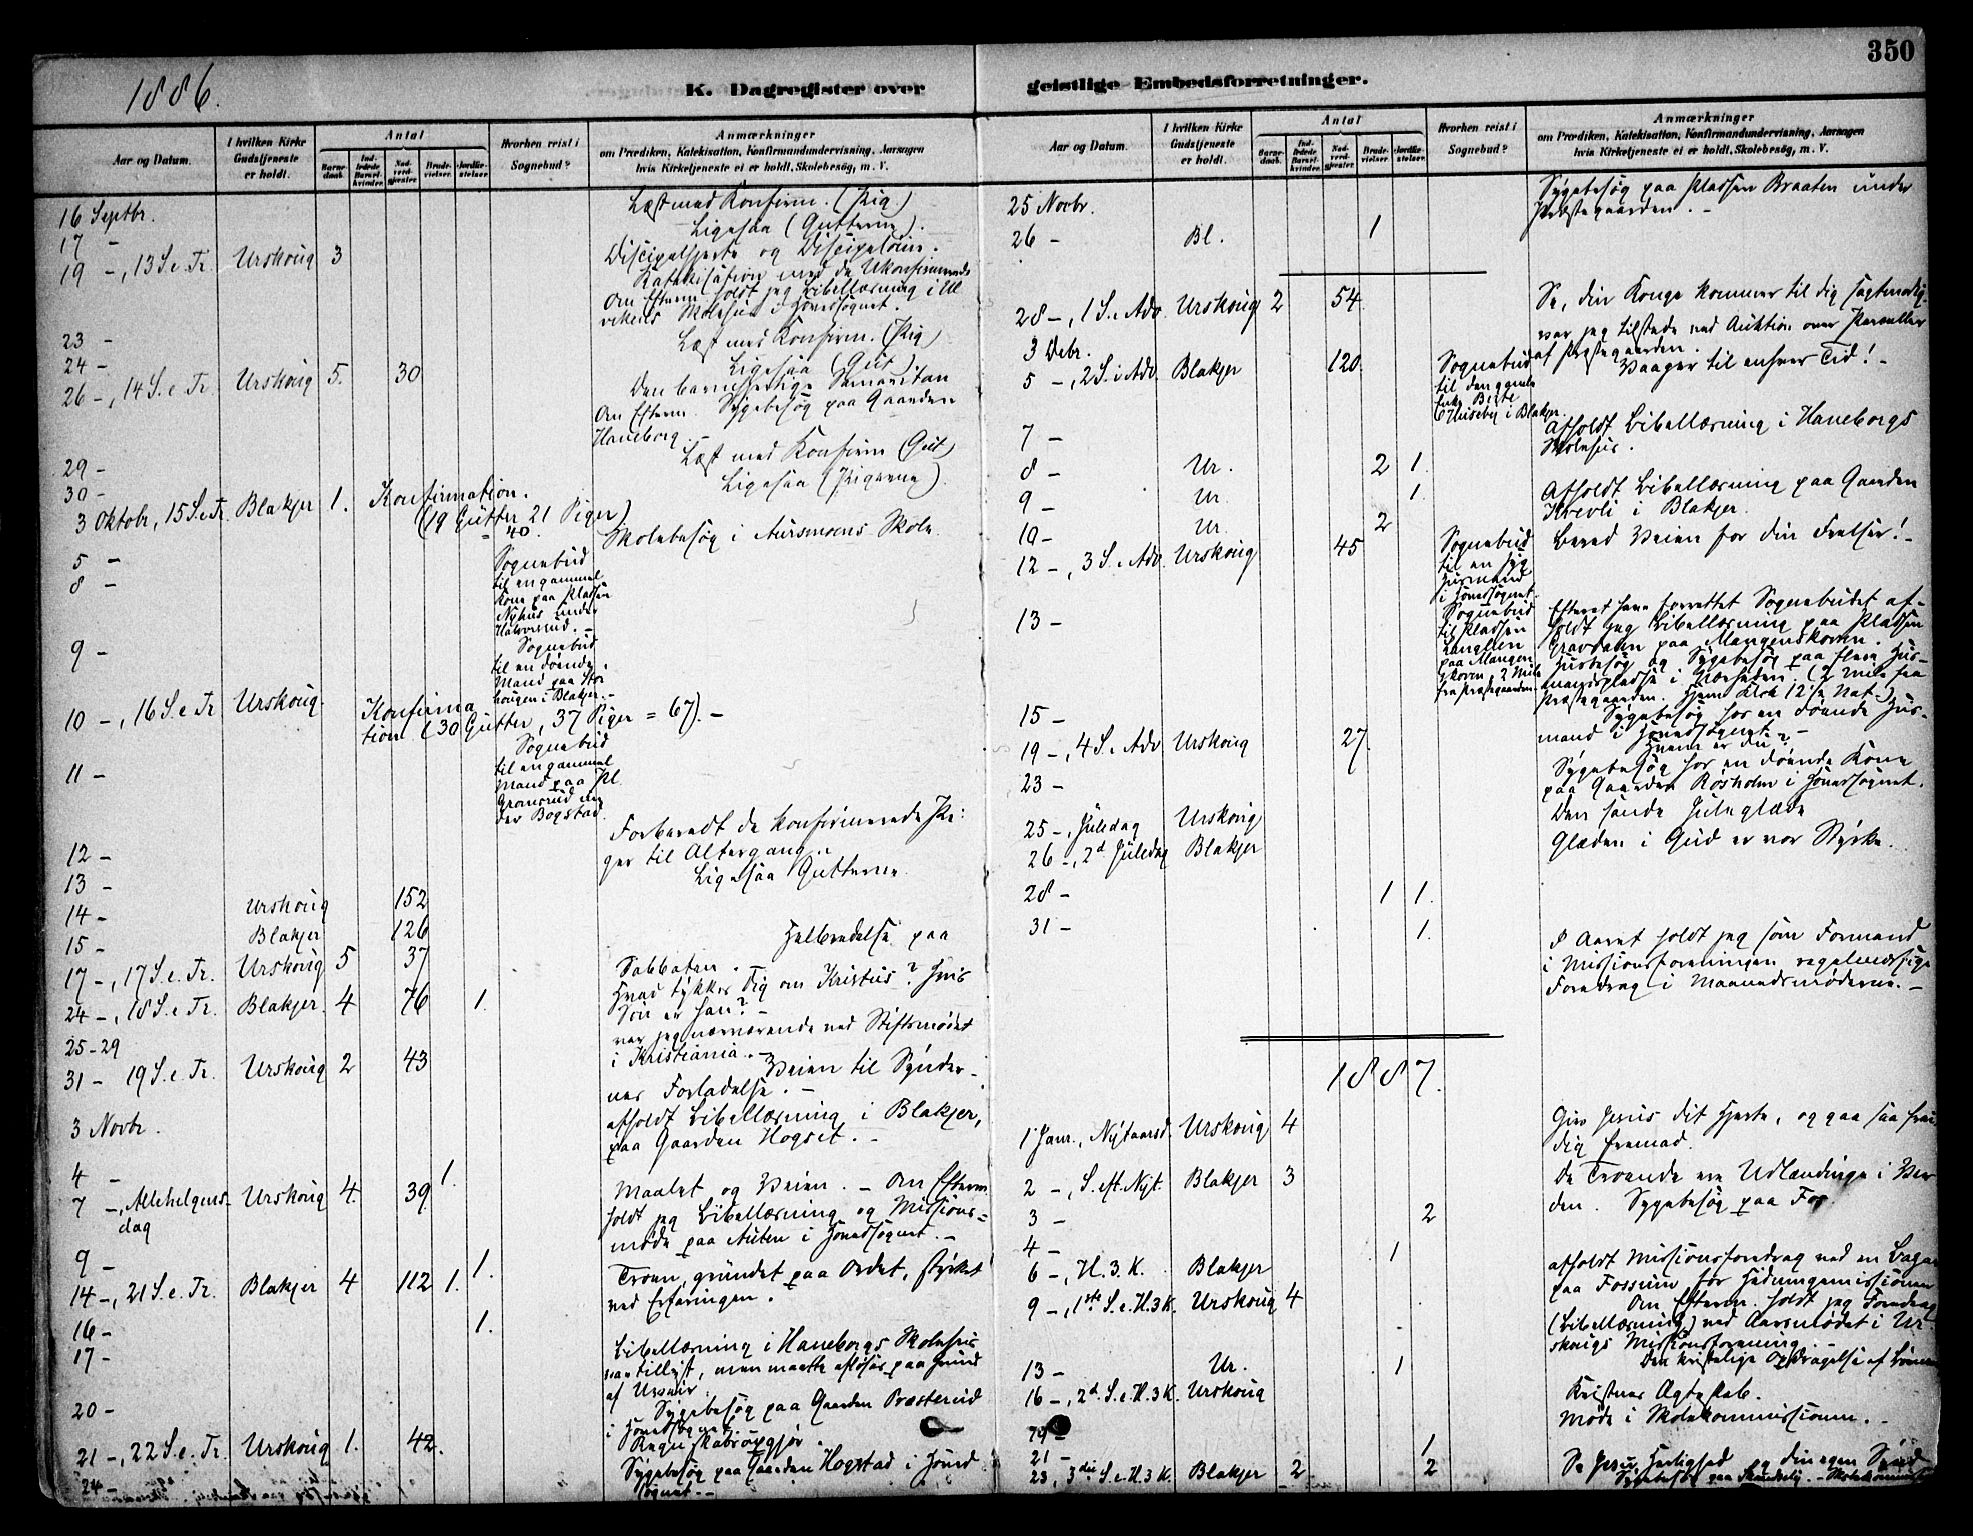 350
1886.
K. Dagregister over
geistlige Embedsforretninger.
Aar og Datum.
I hvilken Kirke Gudstjeneste er holdt.
Antal
Barnedaab.
Indledede Barselkvinder.
Nadverdgjester
Brudevielser.
Jordfæstelser.
Hvorhen reist i Sognebud?
Anmærkninger
om Prædiken, Katekisation, Konfirmandundervisning, Aarsagen
hvis Kirketjeneste ei er holdt, Skolebesøg, m. V.
16 Septbr. Læst med Konfirm. (Pig.)
17 - Ligesaa (Gutterne).
19 -, 13 S. e. Tr. Urskoug 3 Discipelhjerte og Discipelsind.
Katekisation med de Ukonfirmerede
Om Efterm. holdt jeg Bibellæsning i Ul
vikens Skolehus i Hovedsognet.
23 - Læst med Konfirm. (Pig)
24 - Ligesaa (Gut)
26 -, 14 S. e. Tr. Urskoug 5. 30 Den barmhertige Samaritan
Om Efterm. Sygebesøg paa Gaarden
Haneborg. -
29 - Læst med Konfirm (Gut)
30 - Ligesaa (Pigerne).
3 Oktobr, 15 S. e. Tr. Blakjer 1. Konfirmation.
(19 Gutter 21 Piger)
= 40.
5 - Skolebesøg i Aursmoens Skole.
8 - Sognebud
til en gammel
Kone paa Pladsen
Nyhus under
Halvorsrud. -
9 - Sognebud
til en døende
Mand paa Stor
hougen i Blakjer. -
10 -, 16 S. e. Tr Urskoug. Konfirma
tion (30 Gutter, 37 Piger = 67). -
11 - Sognebud
til en gammel
Mand paa Pl.
Gronsrud un
der Bogstad.
12 - Forberedt de konfirmerede Pi:
ger til Altergang. -
13 - Ligesaa Gutterne.
14 - Urskoug 152
15 - Blakjer 126
17 -, 17 S. e. Tr. Urskoug 5 37 Helbredelse paa
Sabbaten.
24 -, 18 S. e Tr. Blakjer. 4 76 1. Hvad tykkes Dig om Kristus? Hvis
Søn er han? -
25-29 var jeg nærværende ved Stiftsmødet
i Kristiania. -
31 - 19 S. e. Tr. Urskoug 2 43 Veien til Synder-
nes Forladelse. -
3 Novbr. afholdt Bibellæsning i Blakjer,
paa Gaarden Hogset. -
4 - 1.
7 -, Allehelgens- Urskoug 4. 39. Maalet og Veien. - Om Efterm.
dag holdt jeg Bibellæsning og Missions=
møde paa Auten i Hovedsognet. -
9 - 1.
14 -, 21 S. e. Tr. Blakjer 4 112 1. Troen, grundet paa Ordet, styrket
ved Erfaringen.
16 - 1.
17 - Bibellæsning i Haneborgs Skolehus
var tillyst, men maatte aflyses paa Grund
af Uveir.
20 - Sygebesøg paa Gaarden Præsterud
i Hovedsognet
21 -, 22 S. e. Tr. Urskoug 1. 42. Regnskabsopgjør.
24 - Sygebesøg paa Gaarden Hogstad i Hoved
sognet. -
Aar og Datum.
I hvilken Kirke Gudstjeneste er holdt.
Antal
Barnedaab.
Indledede Barselkvinder.
Nadverdgjester
Brudevielser.
Jordfæstelser.
Hvorhen reist i Sognebud?
Anmærkninger
om Prædiken, Katekisation, Konfirmandundervisning, Aarsagen
hvis Kirketjeneste ei er holdt, Skolebesøg, m. V.
25 Novbr. Sygebesøg paa Pladsen Braaten under
Præstegaarden. -
26 - Bl. 1
28 -, 1 S. i Adv. Urskoug 2 54. Se, din Konge kommer til dig sagtmodig.
3 Debr. var jeg tilstede ved Auktion over Parceller
af Præstegaarden.
5 -, 2 S. i Adv. Blakjer 120. Sognebud Vaager til enhver Tid! -
til den gamle
Enke Berte
Huseby i Blakjer.
7 - Afholdt Bibellæsning i Haneborgs
Skolehus.
8 - Ur. 2 1.
9 - Ur. 1. Afholdt Bibellæsning paa Gaarden
Kvevli i Blakjer.
10 - Ur. 2
12 -, 3 S. i Adv. Urskoug 45 Sognebud Bered Veien for din Frelser! -
til en syg
Husmand
i Hovedsognet.
13 - Sognebud Efterat have forrettet Sognebudet af-
til Pladsen holdt jeg Bibellæsning paa Pladsen
Langlien Gravdalen paa Mangenskoven.
paa Mangen Husbesøg og Sygebesøg paa flere Hus-
skoven, 2 Mile mandspladse i Nærheden. (2 Mile fra
fra Præstegaarden. Præstegaarden. Hjem Klok 12½ Nat-)
15 - Sygebesøg hos en døende Hus-
mand i Hovedsognet. -
19 -, 4 S. i Adv Urskoug 27. Hvem er du?
23 - Sygebesøg hos en døende Kone
paa Gaarden Rosholm i Hovedsognet.
25 -, Juledag Urskoug Den sande Juleglæde
26 -, 2d Juledag Blakjer Glæden i Gud er vor Styrke.
28 - 1 1.
31 - 1. I Aaret holdt jeg som Formand
i Missionsforeningen regelmessige
Foredrag i Maanedsmøderne. -
1887.
1 Janr., Nytaarsd. Urskoug 4 Giv Jesus dit Hjerte, og gaa saa frei
dig fremad.
2 -, S. eft. Nyt. Blakjer 3 De Troende ere Udlændinge i Ver
den. Sygebesøg paa Fos
3 - 2
4 - 1
6 -, H. 3. K. Blakjer afholdt Missionsforedrag ved en Bazar
paa Fossum for Hedningemissionen
9 -, 1ste S. e. H. 3 K. Urskoug 4 Om Efterm. holdt jeg Foredrag
(Bibellæsning) ved Aarsmødet i Ur
skougs Missionsforening. -
13 - Ur. 1 Den kristelige Opdragelse af Børnene
16 -, 2d. S. e. H. 3 K. Urskoug Kristnes Ægteskab.
Møde i Skolekommissionen. -
21 - 1
23, 3die S. e H. 3 K. Blakjer 2 2 Se Jesu Herlighed og din egen Synd
Sygebesøg paa